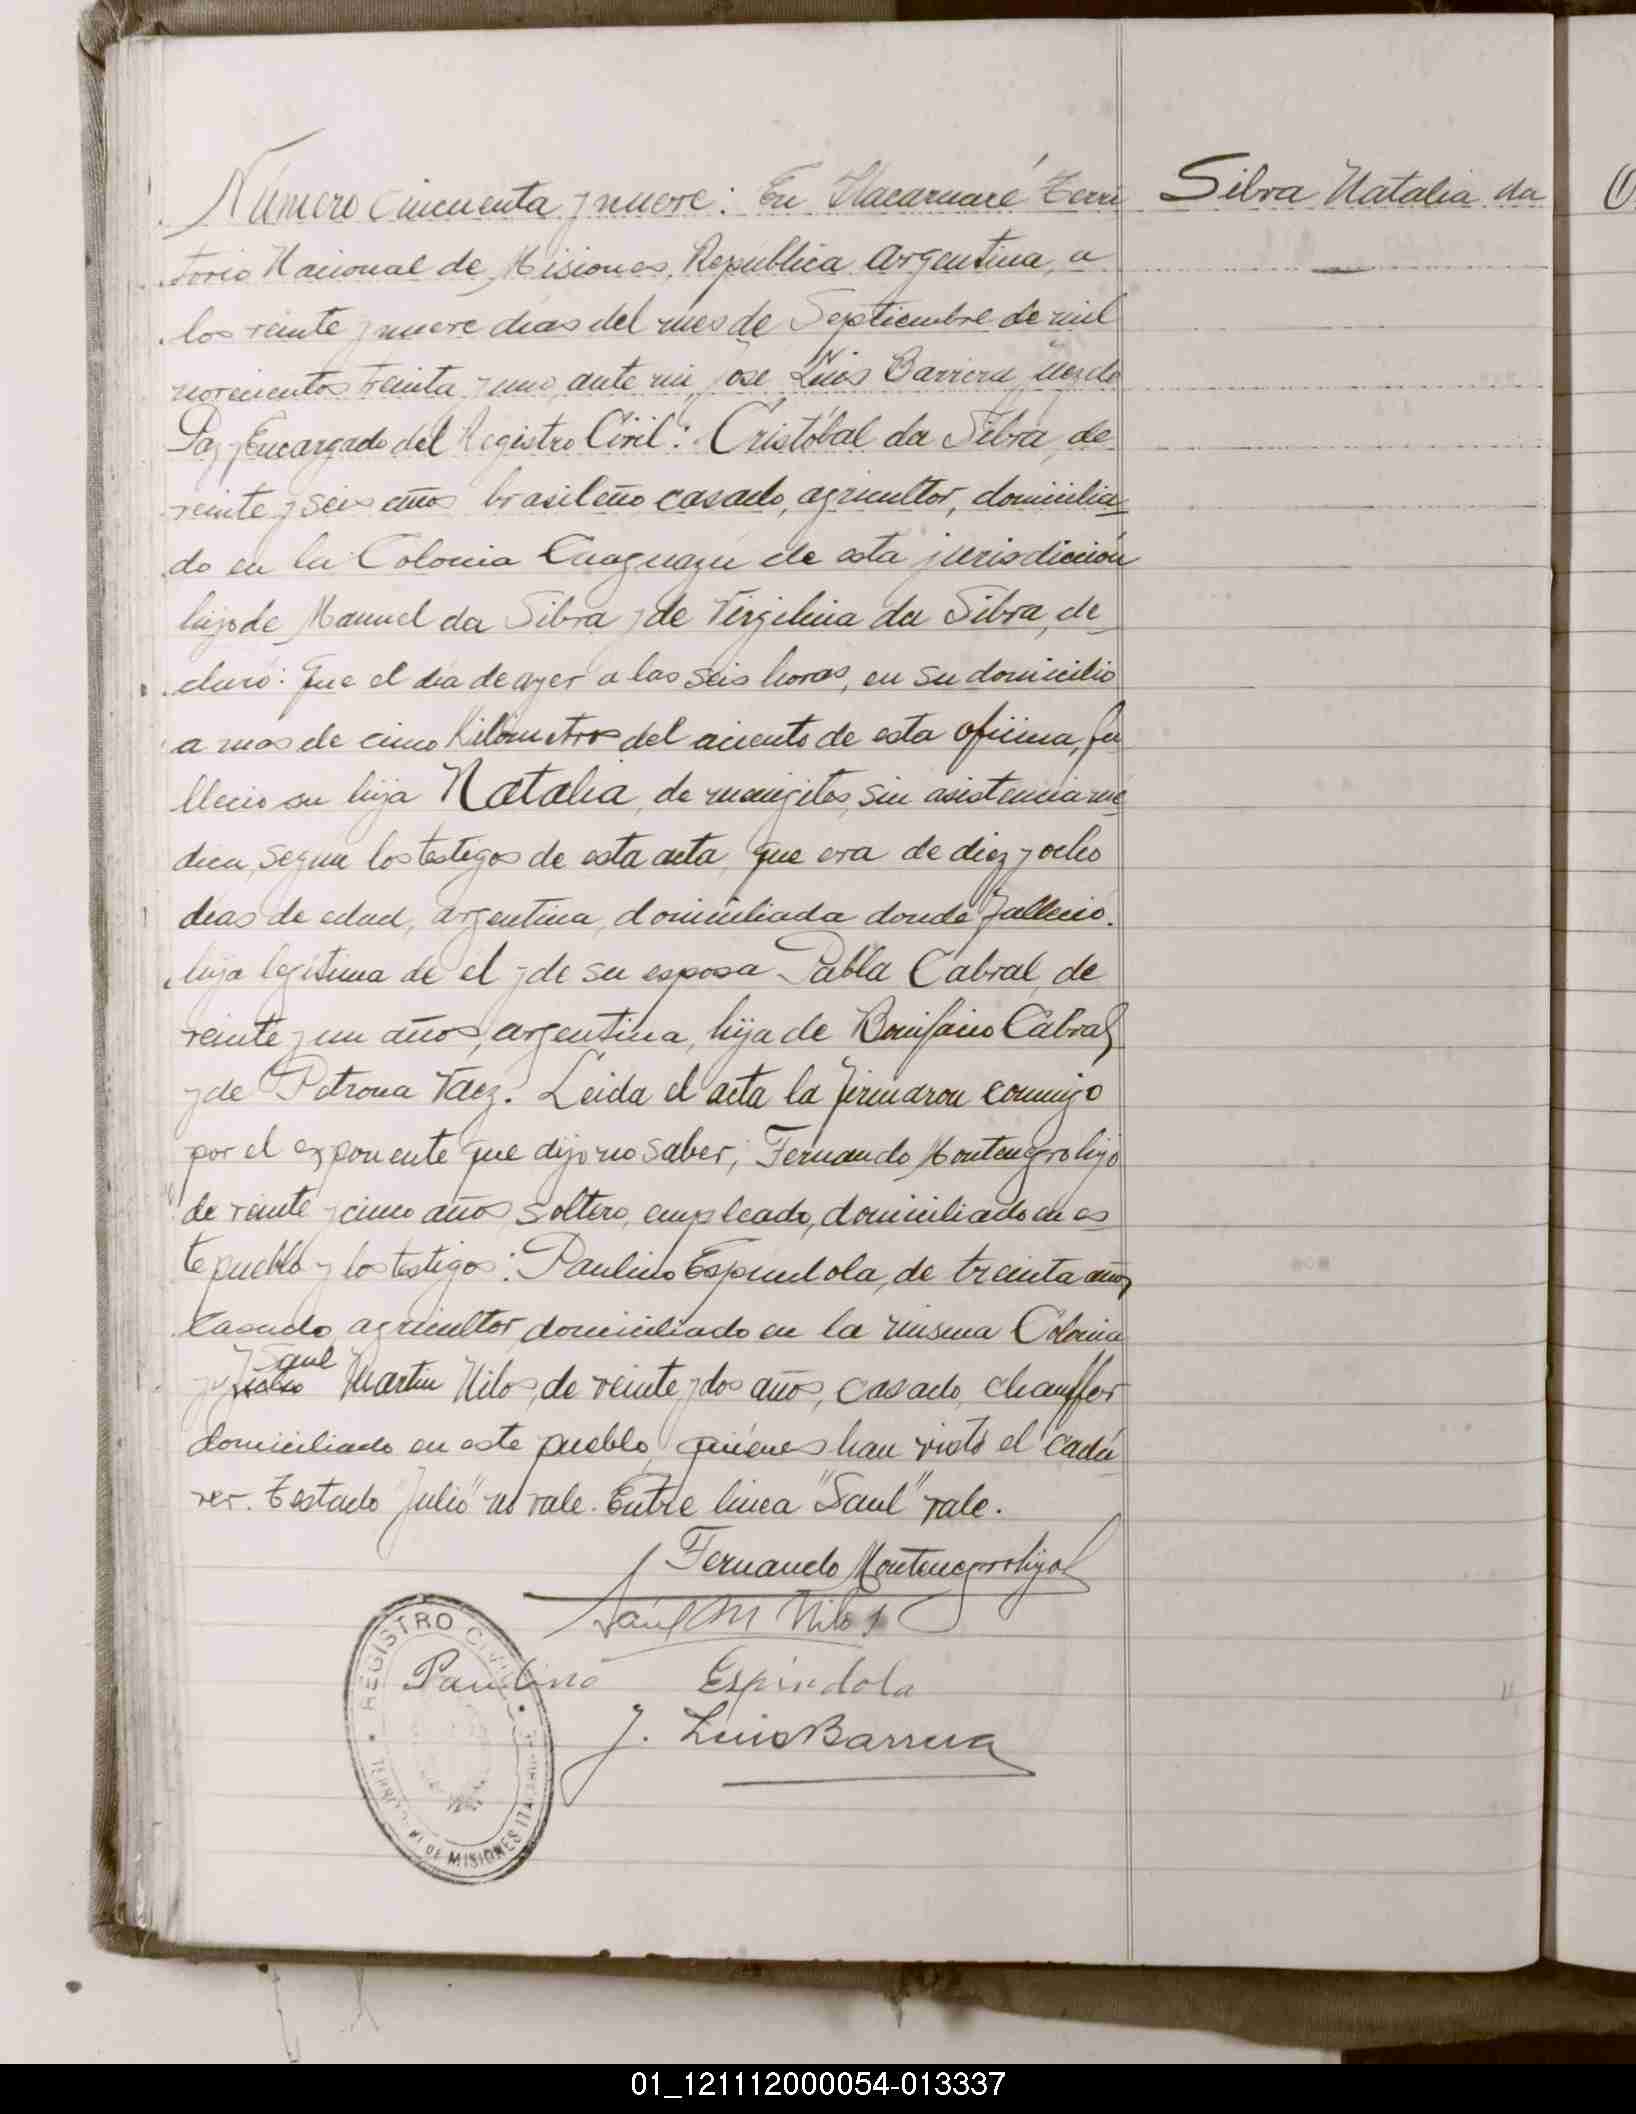 Número cincuenta y nueve: En Itacaruaré Terri
Silva Natalia da
torio Nacional de Misiones, República Argentina, a
los veinte y nueve días del mes de Septiembre de mil
novecientos treinta y uno, ante mi, José Luis Barrera, Juez de
Paz y Encargado del Registro Civil: Cristóbal da Silva, de
veinte y seis años brasileño casado, agricultor, domicilia
do en la Colonia Caaguazú de esta jurisdicción
hijo de Manuel da Silva y de Virgilina da Silva, de
claró: Que el día de ayer a las seis horas, en su domicilio
a mas de cinco Kilometros del aciento de esta oficina, fa
llecio su hija Natalia, de meningitis, sin asistencia mé
dica, segun los testigos de esta acta, que era de diez y ocho
dias de edad, argentina, domiciliada donde falleció.
hija legítima de el y de su esposa Pabla Cabral, de
veinte y un años, argentina, hija de Bonifacio Cabral
y de Petrona Vaez. Leida el acta la firmaron conmigo
por el exponente que dijo no saber; Fernando Montenegro hijo
de veinte y cinco años, soltero, empleado, domiciliado en es
te pueblo y los testigos: Paulino Espindola, de treinta años
casado, agricultor, domiciliado en la misma Colonia
Saul
y Julio Martin Nilos, de veinte y dos años, casado, chauffer
domiciliado en este pueblo, quienes han visto el cadá
ver. Testado "Julio" no vale. Entre linea "Saul" vale.
Fernando Montenegro hijo
Saúl M Nilos
Paulino Espindola
J. Luis Barrera
REGISTRO CIVIL
MISIONES
01_121112000054-013337